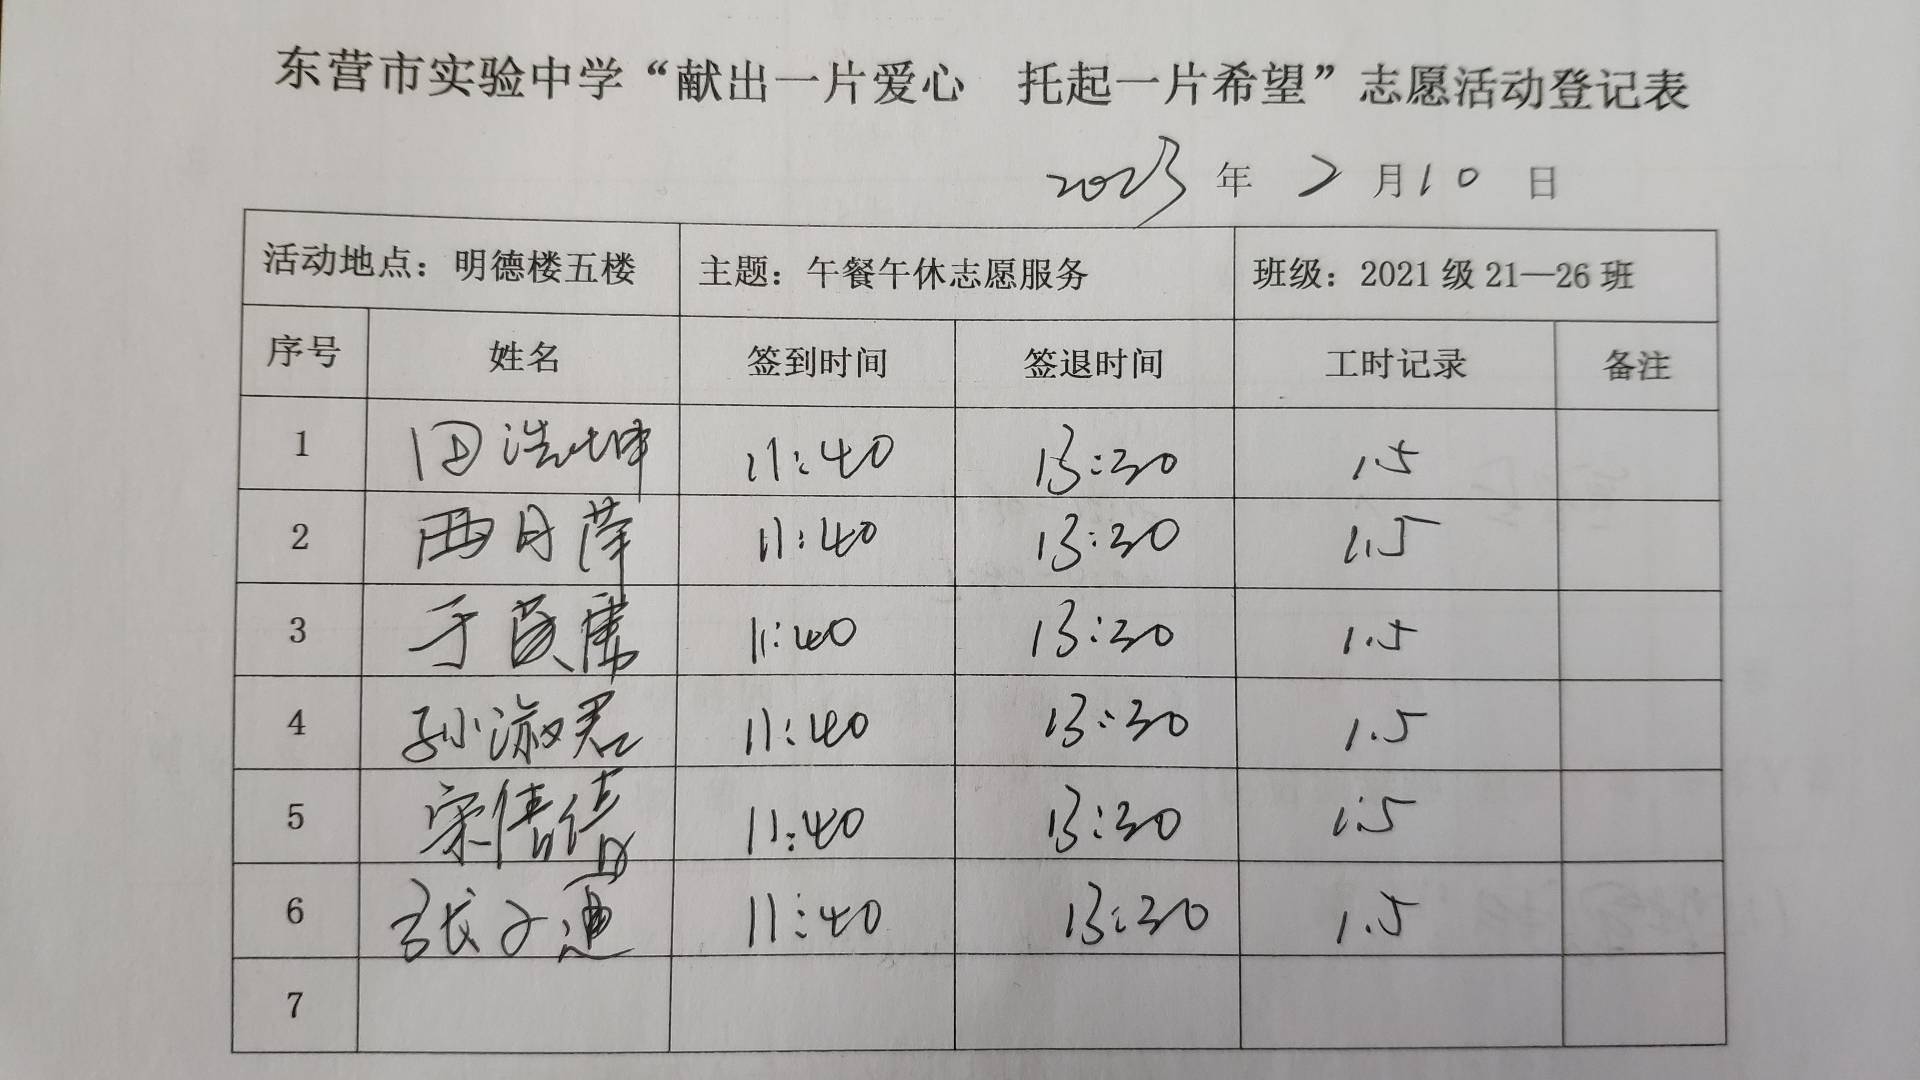 东营市实验中学“献出一片爱心 托起一片希望”志愿活动登记表
2023 年 2 月 10 日
活动地点：明德楼五楼 主题：午餐午休志愿服务 班级：2021级21—26班
序号 姓名 签到时间 签退时间 工时记录 备注
1 田浩坤 11:40 13:30 1.5
2 11:40 13:30 1.5
3 于 11:40 13:30 1.5
4 孙淑君 11:40 13:30 1.5
5 宋倩倩 11:40 13:30 1.5
6 张子迪 11:40 13:30 1.5
7